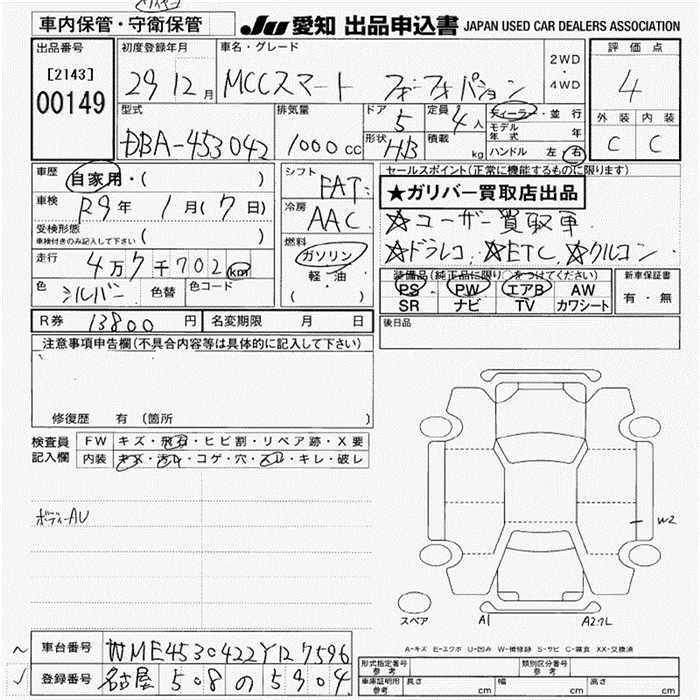 車内保管・守衛保管
JU 愛知 出品申込書 JAPAN USED CAR DEALERS ASSOCIATION
出品番号 初度登録年月 車名・グレード 評価点
[2143]
00149
29 12月 MCCスマート フォーフォーパション 2WD・4WD 4
型式 排気量 ドア 5 定員 4人 ディーラー・並行 外装 内装
モデル年式 年
DBA-453042 1000cc 形状 HB 積載 kg ハンドル 左・右 C C
車歴 自家用・( ) シフト FAT セールスポイント(正常に機能するものに限ります)
★ガリバー買取店出品
車検 R9年 1月(7日) 冷房 AAC ☆ユーザー買取車
受検形態 ( )
車検付きのみ記入して下さい
☆ドラレコ、☆ETC、☆クルコン
走行 4万7千702km 燃料 ガソリン・軽・油 ( )
装備品(純正品に限り○をつけてください) 新車保証書
PS PW エアB AW 有・無
SR ナビ TV カワシート
色 シルバー 色替 色コード
R券 13800円 名変期限 月 日 後日品
注意事項申告欄(不具合内容等は具体的に記入して下さい)
修復歴 有 (箇所 )
検査員記入欄 FW キズ・飛石・ヒビ割・リペア跡・X要
内装 キズ・汚れ・コゲ・穴・スレ・キレ・破レ
ボディーAU
W2
スペア A1 A2.7L
A-キズ E-エクボ U-凹み W-補修跡 S-サビ C-腐食 XX-交換済
車台番号 WME4530422Y127596
登録番号 名古屋 508 の 5904
形式指定番号 参考 類別区分番号 参考
車庫証明用 参考 長さ cm 幅 cm 高さ cm